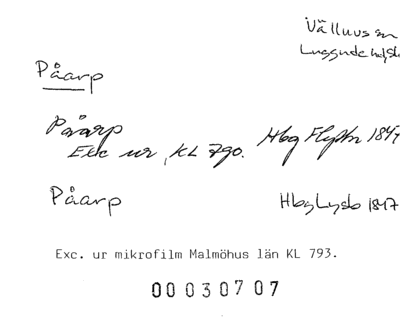 Välluvs sn
Luggude hd, Sk
Påarp
Påarp Hbg Flyttn 1847
Exc ur KL 790.
Påarp Hbg Lysb 1847
Exc. ur mikrofilm Malmöhus län KL 793.
00030707